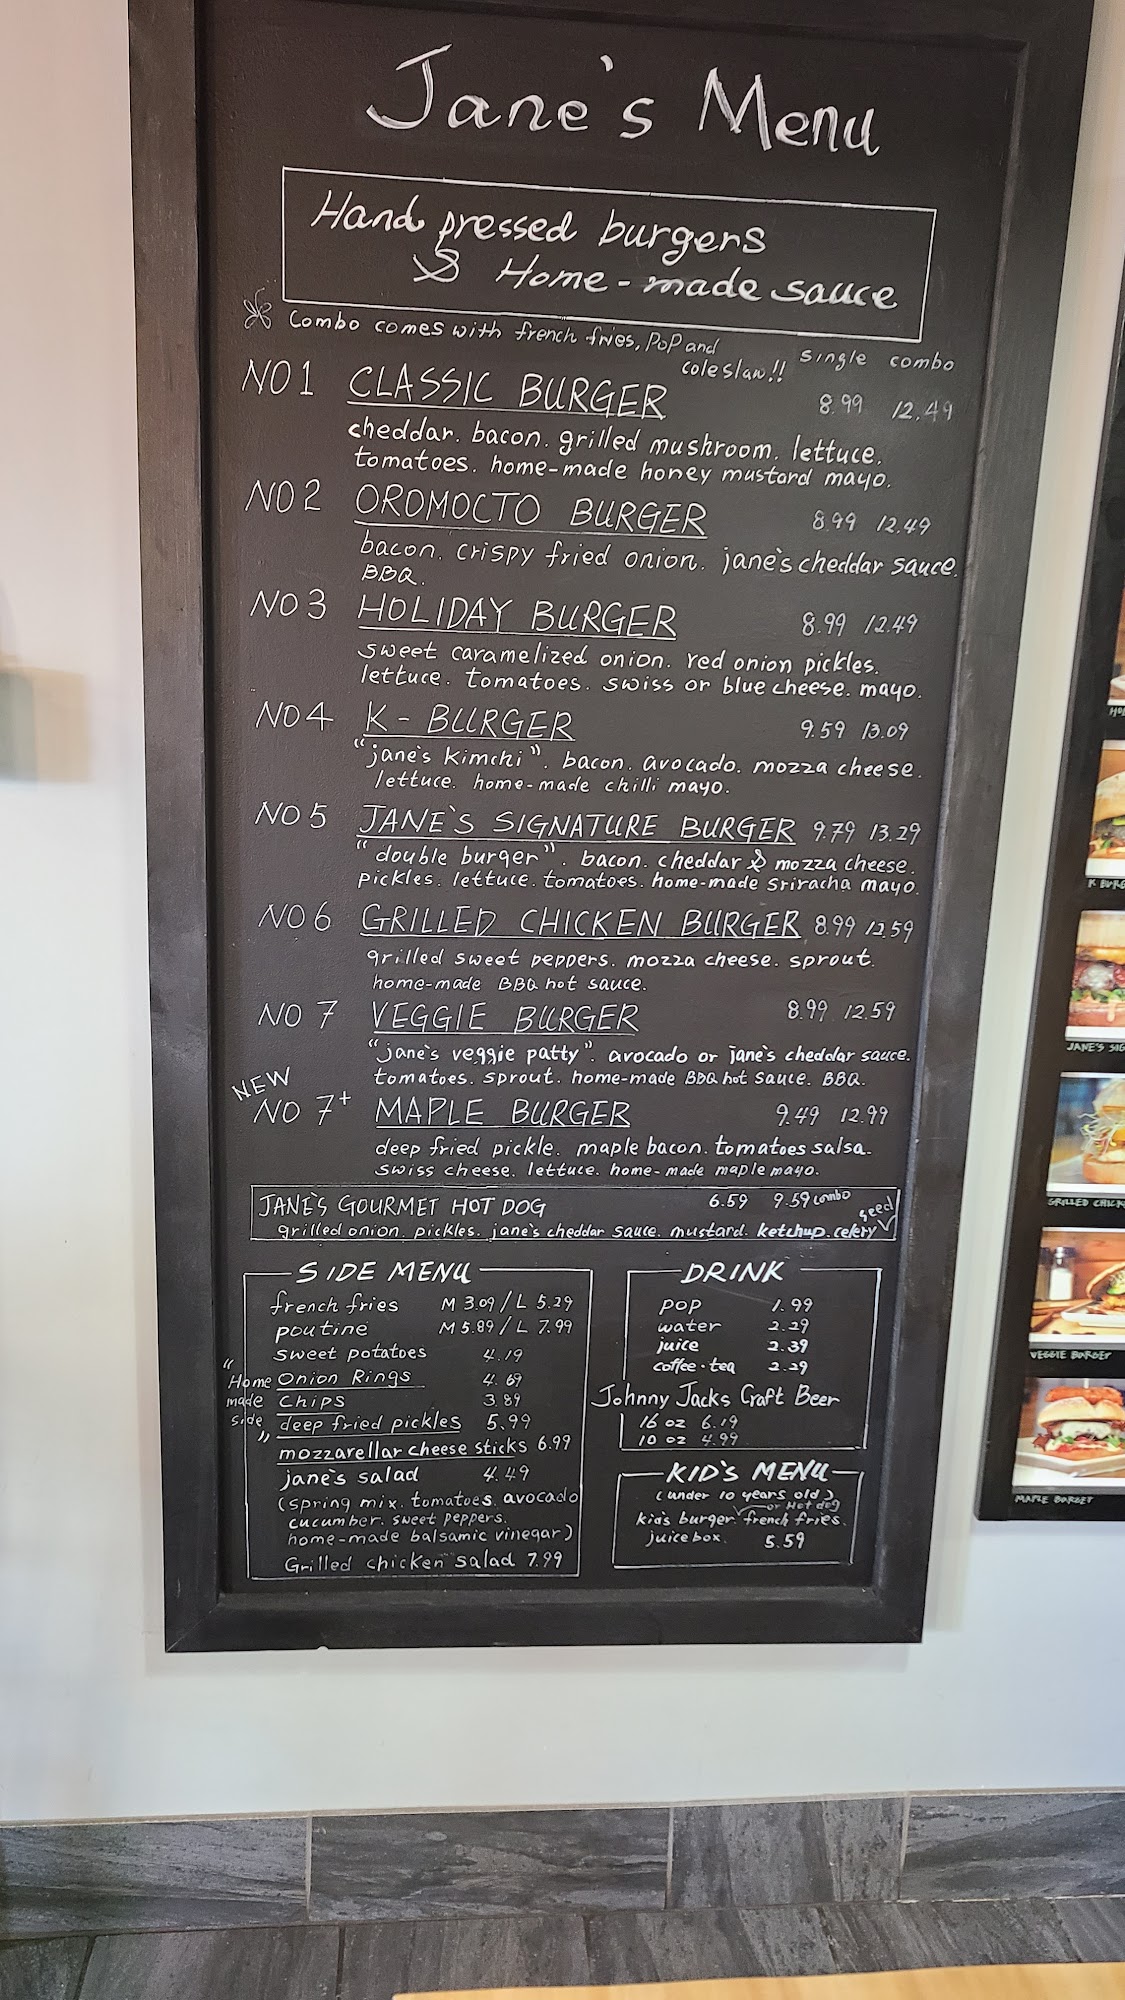 Jane's Menu
Hand pressed burgers
& Home-made sauce
Combo comes with french fries, pop and
coleslaw!!
single combo
NO1 CLASSIC BURGER 8.99 12.49
cheddar. bacon. grilled mushroom. lettuce.
tomatoes. home-made honey mustard mayo.
NO2 OROMOCTO BURGER 8.99 12.49
bacon. crispy fried onion. jane's cheddar sauce.
BBQ.
NO3 HOLIDAY BURGER 8.99 12.49
sweet caramelized onion. red onion pickles.
lettuce. tomatoes. swiss or blue cheese. mayo.
NO4 K-BURGER 9.59 13.09
"jane's kimchi". bacon. avocado. mozza cheese.
lettuce. home-made chilli mayo.
NO5 JANE'S SIGNATURE BURGER 9.79 13.29
"double burger". bacon. cheddar & mozza cheese.
pickles. lettuce. tomatoes. home-made sriracha mayo.
NO6 GRILLED CHICKEN BURGER 8.99 12.59
grilled sweet peppers. mozza cheese. sprout.
home-made BBQ hot sauce.
NO7 VEGGIE BURGER 8.99 12.59
"jane's veggie patty". avocado or jane's cheddar sauce.
tomatoes. sprout. home-made BBQ hot sauce. BBQ.
NEW
NO 7+ MAPLE BURGER 9.49 12.99
deep fried pickle. maple bacon. tomatoes salsa.
swiss cheese. lettuce. home-made maple mayo.
JANE'S GOURMET HOT DOG 6.59 9.59 combo
grilled onion. pickles. jane's cheddar sauce. mustard. ketchup. celery seed
SIDE MENU
french fries M 3.09 / L 5.29
poutine M 5.89 / L 7.99
sweet potatoes 4.19
"Home made side"
Onion Rings 4.69
Chips 3.89
deep fried pickles 5.99
mozzarellar cheese sticks 6.99
jane's salad 4.49
(spring mix. tomatoes. avocado
cucumber. sweet peppers.
home-made balsamic vinegar)
Grilled chicken salad 7.99
DRINK
pop 1.99
water 2.29
juice 2.39
coffee·tea 2.29
Johnny Jacks Craft Beer
16 oz 6.19
10 oz 4.99
KID'S MENU
(under 10 years old)
or Hot dog
kid's burger french fries.
juice box. 5.59
K BURG
JANE'S SIG
GRILLED CHICK
VEGGIE BURGER
MAPLE BURGER